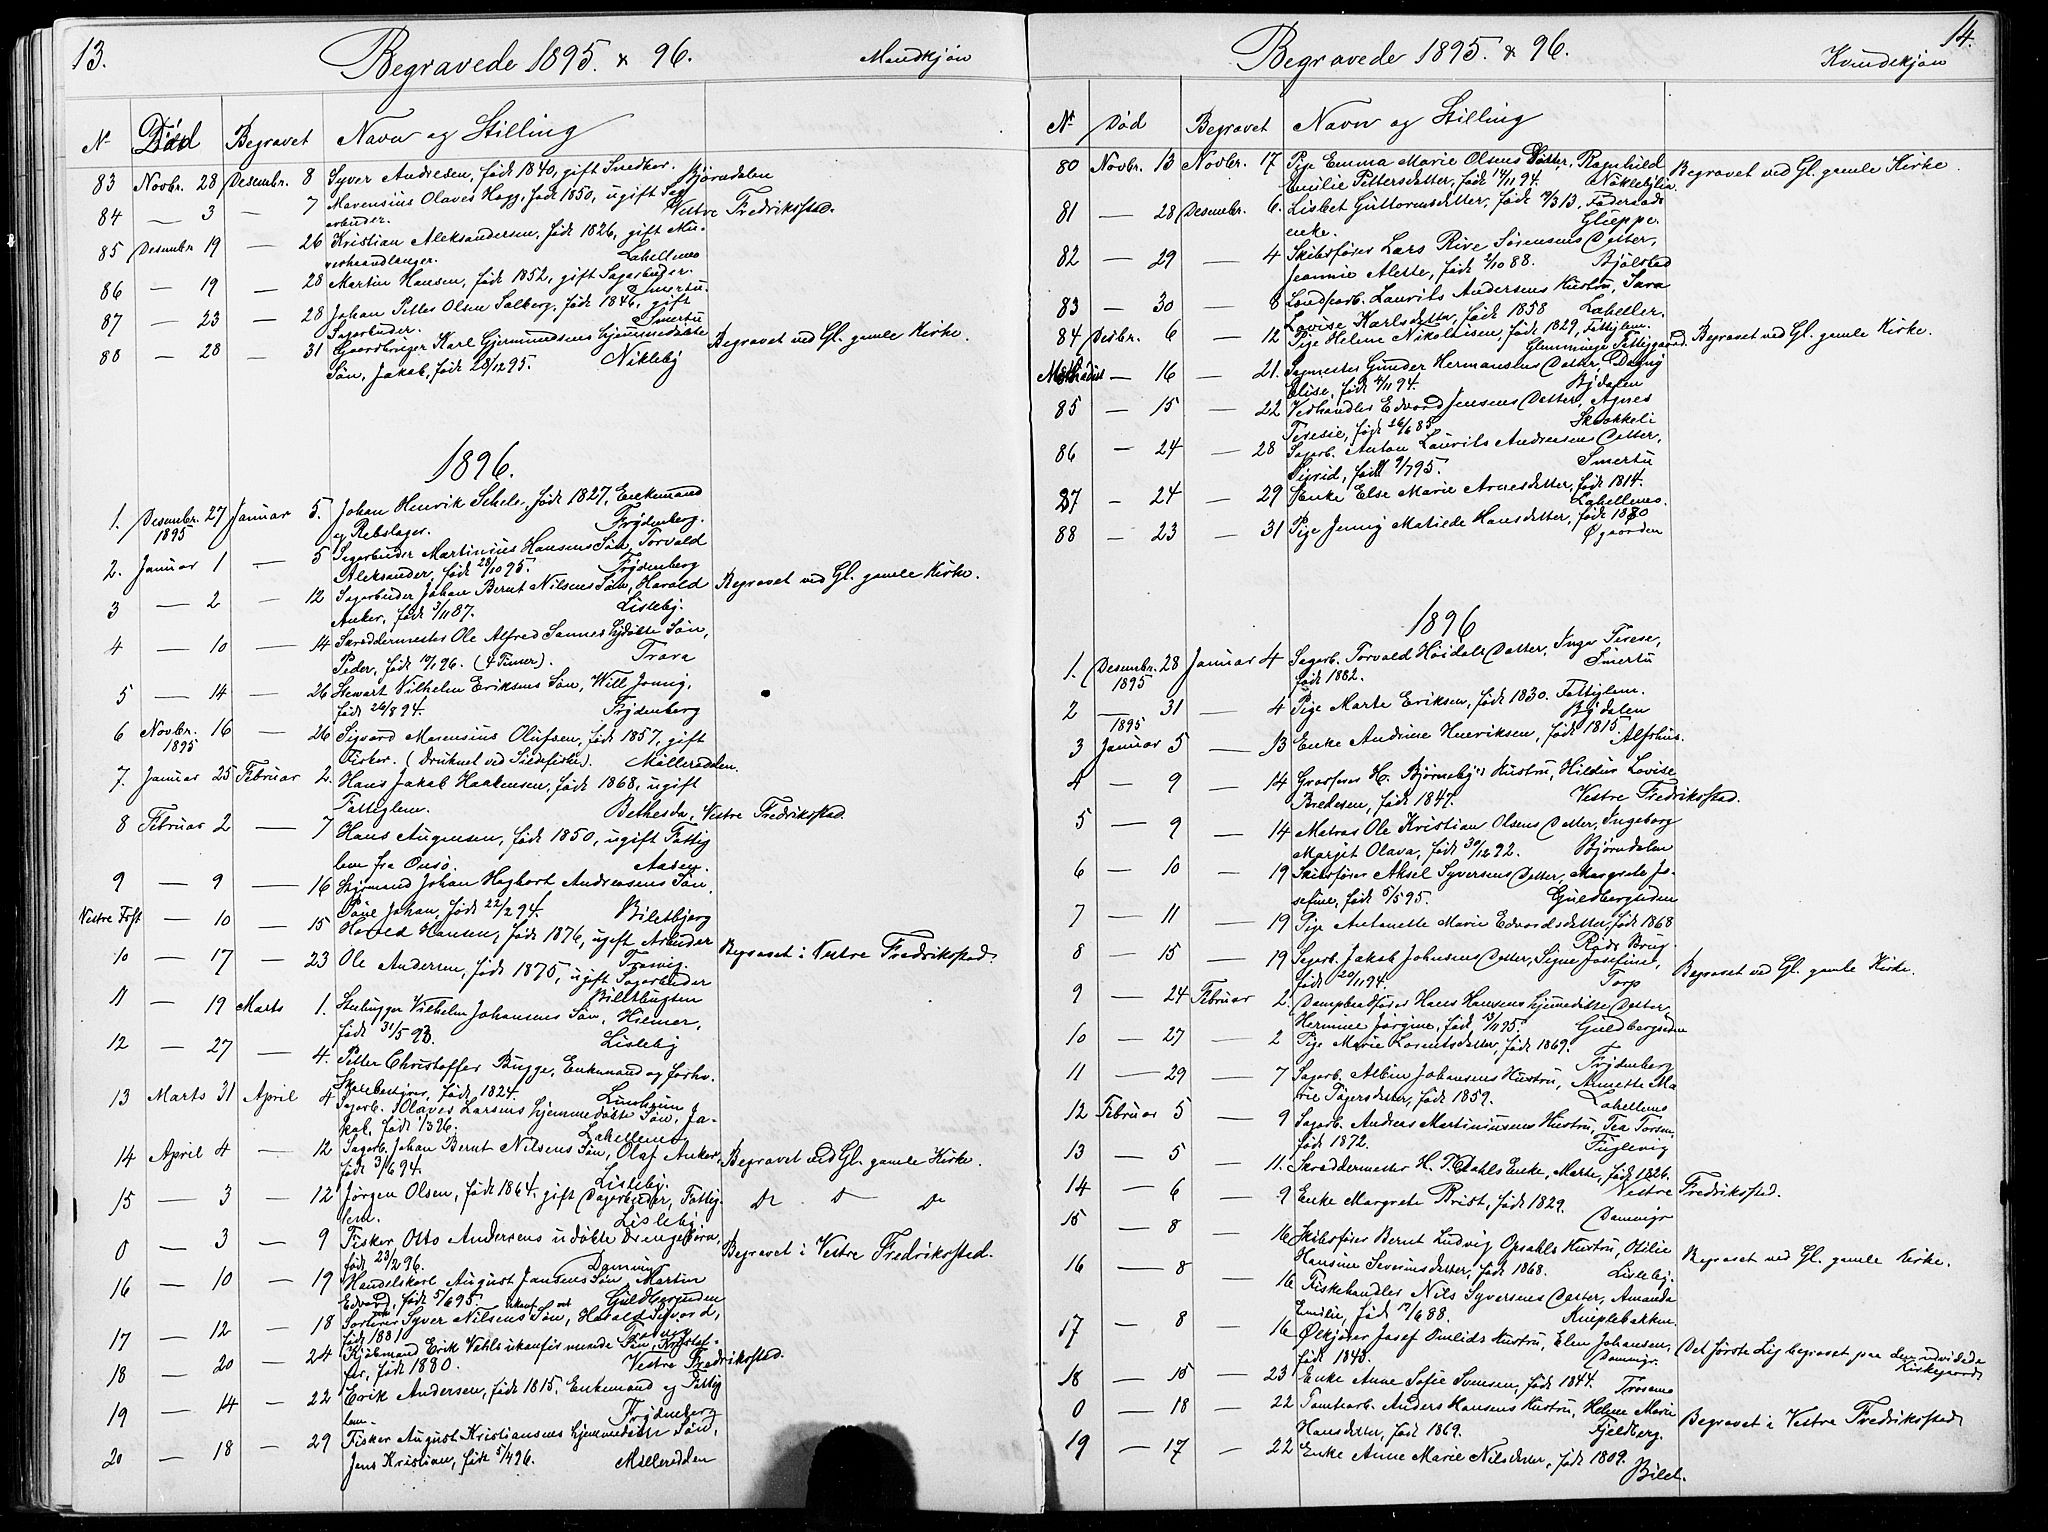 13.
Begravede 1895. & 96.
Mandkjøn
No Død Begravet Navn og Stilling
83 Novbr. 28 Desembr. 8 Syver Andresen, født 1840, gift Snedker. Bjørndalen
84 — 3 — 7 Marensius Olaves Hagg, født 1850, ugift Sag
arbuder. Vestre Fredriksstad.
85 Desembr. 19 — 26 Kristian Aleksandersen, født 1826, gift Mu-
rerhaandlanger. Lahellemo
86 — 19 — 28 Martin Hansen, født 1852, gift Sagarbuder. Smertu.
87 — 23 — 28 Johan Petter Olsen Solberg, født 1846, gift
Sagarbuder. Smertu
88 — 28 — 31 Gaardbruger Karl Gjermundsens hjemmedøbte
Søn, Jakob, født 28/12 95. Nikleby Begravet ved Gl. gamle Kirke.
1896.
1. Desembr. 27 Januar 5. Johan Henrik Schele, født 1827, Enkemand
1895 og Rebslager. Frydenberg.
2. Januar 1 — 5 Sagarbuder Martinius Hansens Søn, Torvald
Aleksander, født 28/10 95. Frydenberg
3 — 2 — 12 Sagarbuder Johan Bernt Nilsens Søn, Harald Begravet ved Gl. gamle Kirke.
Anker, født 3/11 87. Lisleby.
4 — 10 — 14 Skræddermester Ole Alfred Sannes hjdøbte Søn,
Peder, født 10/1 96. (4 Timer). Trara
5 — 14 — 26 Stewart Vilhelm Eriksens Søn, Will Jonny,
født 26/8 94. Frydenberg
6 Novbr. 16 — 26 Sigvard Marensius Olufsen, født 1857, gift
1895 Fisker. (Druknet ved Sildefiske). Mølleredden.
7. Januar 25 Februar 2. Hans Jakob Haakensen, født 1868, ugift
Fattiglem. Bethesda, Vestre Fredriksstad.
8 Februar 2 — 7 Hans Augensen, født 1850, ugift Fattig
lem fra Onsø. Aasen.
9 — 9 — 16 Styrmand Johan Hagbart Andreasens Søn,
Povl Johan, født 22/2 94. Biletbjerg
Vestre Frst — 10 — 15 Harald Hansen, født 1876, ugift Arbuder
Trosvig. Begravet i Vestre Fredriksstad.
10 — 17 — 23 Ole Andersen, født 1875, ugift Sagarbuder
Billtbugten
11 — 19 Marts 1. Stenhugger Vilhelm Johansens Søn, Hilmer,
født 31/5 93. Lisleby
12 — 27 — 4. Petter Christoffer Bugge, Enkemand og forhv.
Skolebestyrer, født 1824. Lunheim
13 Marts 31 April 4 Sagarb. Olaves Larsens hjemmedøbte Søn, Ja-
kob, født 1/3 96. Lahellemo
14 April 4 — 12 Sagarb. Johan Bernt Nilsens Søn, Olaf Anker, Begravet ved Gl. gamle Kirke.
født 3/6 94. Lisleby.
15 — 3 — 12 Jørgen Olsen, født 1864. gift Dagarbeider, Fattig-
lem. Lisleby. Do Do Do
0 — 3 — 9 Fisker Otto Andersens udøbte Drengebarn,
født 23/2 96. Damvig Begravet i Vestre Fredriksstad.
16 — 10 — 19 Handelskarl August Jansens Søn, Martin
Edvard, født 5/6 95. Guldbergsiden
17 — 12 — 18 Sorterer Syver Nilsens Søn, Harald Sigvard,
født 1881
18 — 20 — 24 Kjøbmand Erik Vehls ukonfirmerede Søn, Kristof-
fer, født 1880. Vestre Fredriksstad.
19 — 14 — 22 Erik Andersen, født 1815, Enkemand og Fattig
lem. Frydenberg
20 — 18 — 29 Fisker August Kristiansens hjemmedøbte Søn,
Jens Kristian, født 5/4 96. Mølleredden
14.
Begravede 1895. & 96.
Kvindekjøn
No Død Begravet Navn og Stilling
80 Novbr. 13 Novbr. 17 Pige Emma Marie Olsens Datter, Ragnhild Begravet ved Gl. gamle Kirke.
Emilie Pettersdatter, født 14/11 94. Nøklebylia
81 — 28 Desembr. 6. Lisbet Guttormsdatter, født 1/3 13, Føderaads
enke. Glieppe.
82 — 29 — 4 Skibsfører Lars Rive Sørensens Datter,
Jeannie Alette, født 2/10 88. Bjølstad
83 — 30 — 8 Landharb. Laurits Andersens Hustru, Sara
Lovise Karlsdatter, født 1858 Laheller.
84 Desbr. 6 — 12 Pige Helene Nikolaisen, født 1829, Fattiglem. Begravet ved Gl. gamle Kirke.
Glemminge Fattiggaard.
— 16 — 21. Sagmester Gunder Hermansens Datter, Dagny
Elise, født 4/11 94. Bydalen
85 — 15 — 22 Vedhandler Edvard Jensens Datter, Agnes
Teresie, født 26/6 85. Skovkkeli
86 — 24 — 28 Sagarb. Anton Laurits Andersens Datter,
Sigrid, født 9/7 95. Smertu
87 — 24 — 29 Enke Else Marie Arnesdatter, født 1814.
Lahellemo.
88 — 23 — 31 Pige Jenny Matilde Hansdatter, født 1880
Øgaarden
1896
1. Desembr. 28 Januar 4 Sagarb. Torvald Høidals Datter, Inga Terese,
1895 født 1882. Smertu
2 — 31 — 4 Pige Marte Eriksen, født 1830. Fattiglem.
1895 Bydalen
3 Januar 5 — 13 Enke Andrine Henriksen, født 1815.
Alfshus.
4 — 9 — 14 Grosserer H. Bjørnebyes Hustru, Hildur Lovise
Bredesen, født 1847. Vestre Fredriksstad.
5 — 9 — 14 Matros Ole Kristian Olsens Datter, Ingeborg
Margit Olava, født 30/12 92. Bjørndalen
6 — 10 — 19 Skibsfører Aksel Syversens Datter, Margrete Jo-
sefine, født 5/5 95. Guldbergsiden
7 — 11 — 19 Pige Antonette Marie Edvardsdatter, født 1868
Røds Brug.
8 — 15 — 19 Sagarb. Jakob Johnsens Datter, Signe Josefine, Begravet ved Gl. gamle Kirke.
født 20/11 94. Torp
9 — 24 Februar 2. Dampbaadfører Hans Hansens hjemmedøbte Datter,
Hermine Jørgine, født 13/11 95. Guldbergsiden
10 — 27 — 2 Pige Marie Lorentsdatter, født 1869.
Frydenberg
11 — 29 — 7 Sagarb. Albin Johansens Hustru, Annette Ma-
rie Pojersdatter, født 1859. Lahellemo
12 Februar 5 — 9 Sagarb. Andreas Martiniusens Hustru, Tea Torsen,
født 1872. Fuglevig
13 — 5 — 11. Skræddermester H. P. Dahls Enke, Marte, født 1826.
Vestre Fredriksstad.
14 — 6 — 9 Enke Margrete Krist, født 1829.
Damvig
15 — 8 — 16 Skibsfører Bernt Ludvig Opsahls Hustru, Otilie Begravet ved Gl. gamle Kirke.
Hansine Severinsdatter, født 1868. Lisleby.
16 — 8 — 16 Fiskehandler Nils Syversens Datter, Amanda
Emilie, født 17/6 88. Kniplebakken.
17 — 8 — 16 Ølkjører Josef Omlids Hustru, Elen Johansen, Det første Lig begravet paa den udvidede
født 1843. Damvig. Kirkegaard
18 — 15 — 23 Enke Anne Sofie Svensen, født 1844. Trosemo
0 — 18 — 22 Tomtearb. Anders Hansens Hustru, Helene Marie Begravet i Vestre Fredriksstad
Hansdatter, født 1869. Fjeldberg.
19 — 17 — 22 Enke Anne Marie Nilsdatter, født 1809.
Bilet.